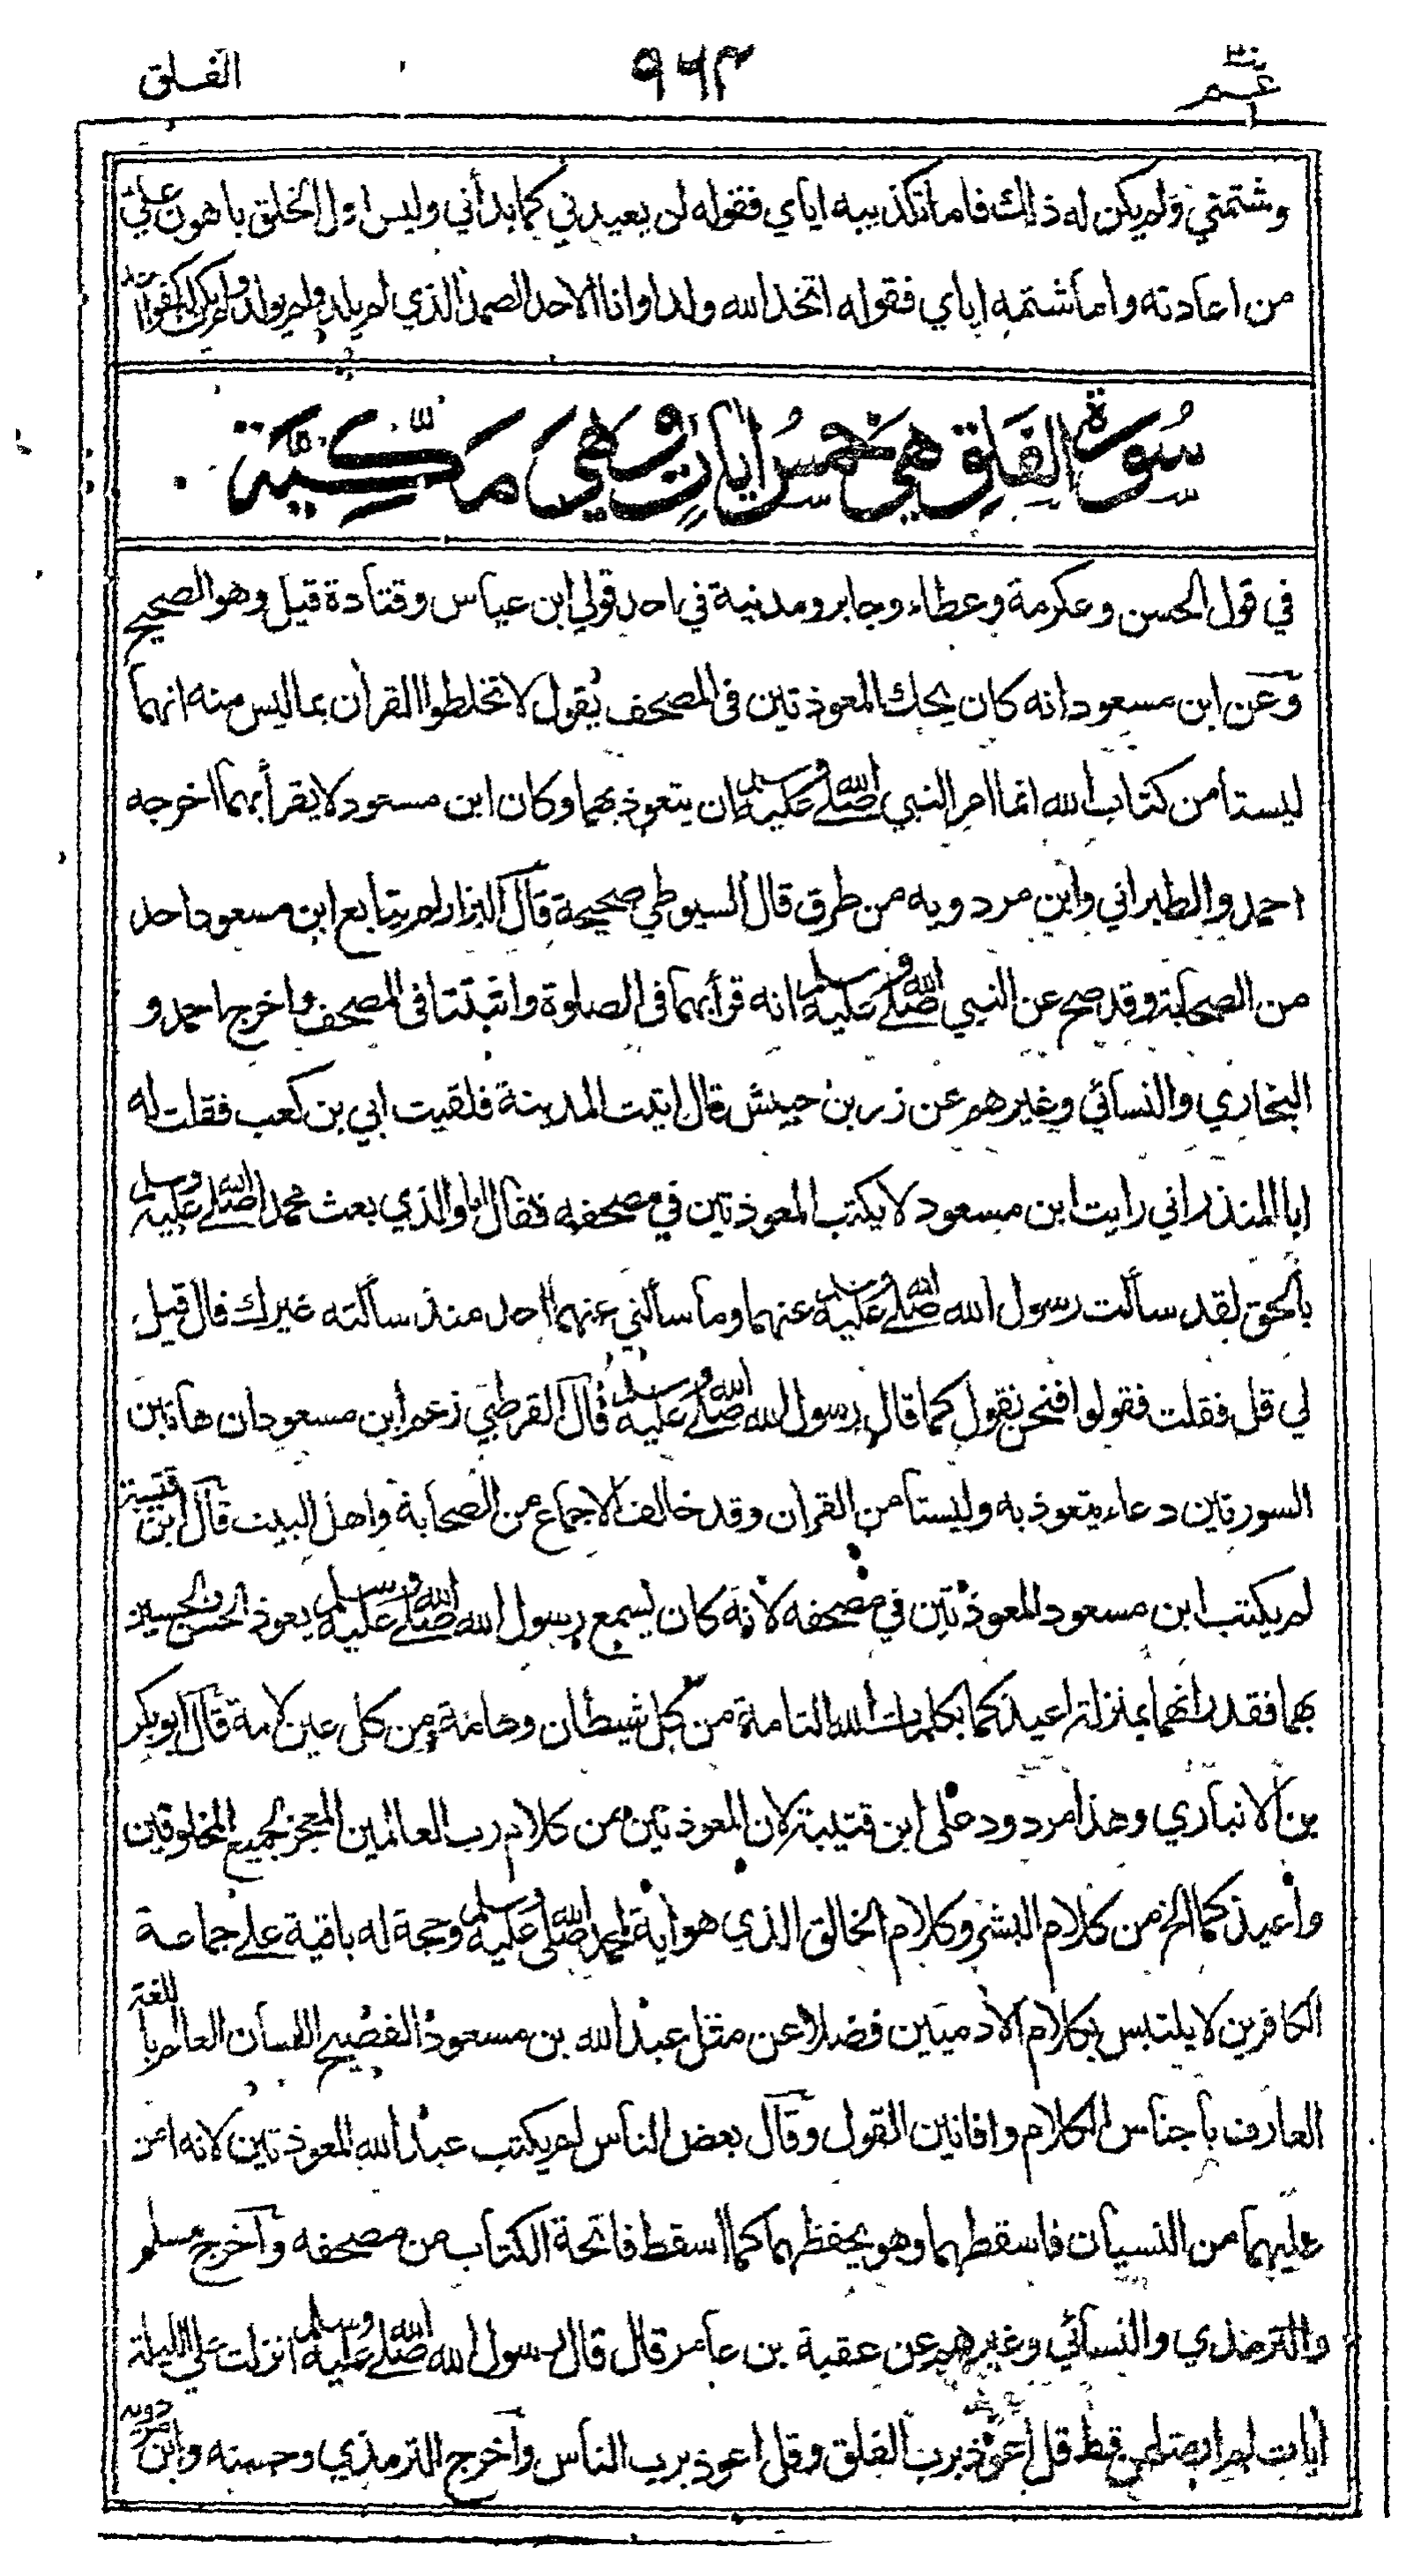 عم ٩٦٣ الفلق
وشتمني ولم يكن له ذلك فاما تكذيبه اياي فقوله لن يعيدني كما بدأني وليس اول الخلق باهون علي
من اعادته واما شتمه اياي فقوله اتخذ الله ولدا وانا الاحد الصمد الذي لم يلد ولم يولد ولم يكن له كفوا احد
سُورة الفَلَقِ هي خَمسُ ايات وهي مَكّيّة
في قول الحسن وعكرمة وعطاء وجابر ومدنية في احد قولي ابن عباس وقتادة قيل وهو الصحيح
وعن ابن مسعود انه كان يحك المعوذتين في المصحف يقول لا تخلطوا القرأن بما ليس منه انهما
ليستا من كتاب الله انما امر النبي صلى الله عليه وسلم ان يتعوذ بهما وكان ابن مسعود لا يقرأ بهما اخرجه
احمد والطبراني وابن مردويه من طرق قال السيوطي صحيحة قال البزار لم يتابع ابن مسعود احد
من الصحابة وقد صح عن النبي صلى الله عليه وسلم انه قرأ بهما في الصلوة واثبتتا في المصحف واخرج احمد و
البخاري والنسائي وغيرهم عن زر بن حبيش قال اتيت المدينة فلقيت ابي بن كعب فقلت له
ابا المنذر اني رايت ابن مسعود لا يكتب المعوذتين في مصحفه فقال اما والذي بعث محمدا صلى الله عليه وسلم
بالحق لقد سألت رسول الله صلى الله عليه وسلم عنهما وما سألني عنهما احد منذ سألته غيرك قال قيل
لي قل فقلت فقولوا فنحن نقول كما قال رسول الله صلى الله عليه وسلم قال القرطبي زعم ابن مسعود ان هاتين
السورتين دعاء يتعوذ به وليستا من القران وقد خالف الاجماع من الصحابة واهل البيت قال ابن قتيبة
لم يكتب ابن مسعود المعوذتين في مصحفه لانه كان يسمع رسول الله صلى الله عليه وسلم يعوذ الحسن والحسين
بهما فقدر انهما بمنزلة اعيذكما بكلمات الله التامة من كل شيطان وهامة ومن كل عين لامة قال ابو بكر
بن الانباري وهذا مردود على ابن قتيبة لان المعوذتين من كلام رب العالمين المعجز لجميع المخلوقين
وأعيذكما الخ من كلام البشر وكلام الخالق الذي هو اية لمحمد صلى الله عليه وسلم وحجة له باقية على جماعة
الكافرين لا يلتبس بكلام الادميين فضلا عن مثل عبد الله بن مسعود الفصيح اللسان العالم باللغة
العارف بأجناس الكلام وافانين القول وقال بعض الناس لم يكتب عبد الله المعوذتين لانه امن
عليهما من النسيان فاسقطهما وهو يحفظهما كما اسقط فاتحة الكتاب من مصحفه وأخرج مسلم
والترمذي والنسائي وغيرهم عن عقبة بن عامر قال قال رسول الله صلى الله عليه وسلم انزلت علي الليلة
ايات لم ار مثلهن قط قل اعوذ برب الفلق وقل اعوذ برب الناس وأخرج الترمذي وحسنه وابن مردويه